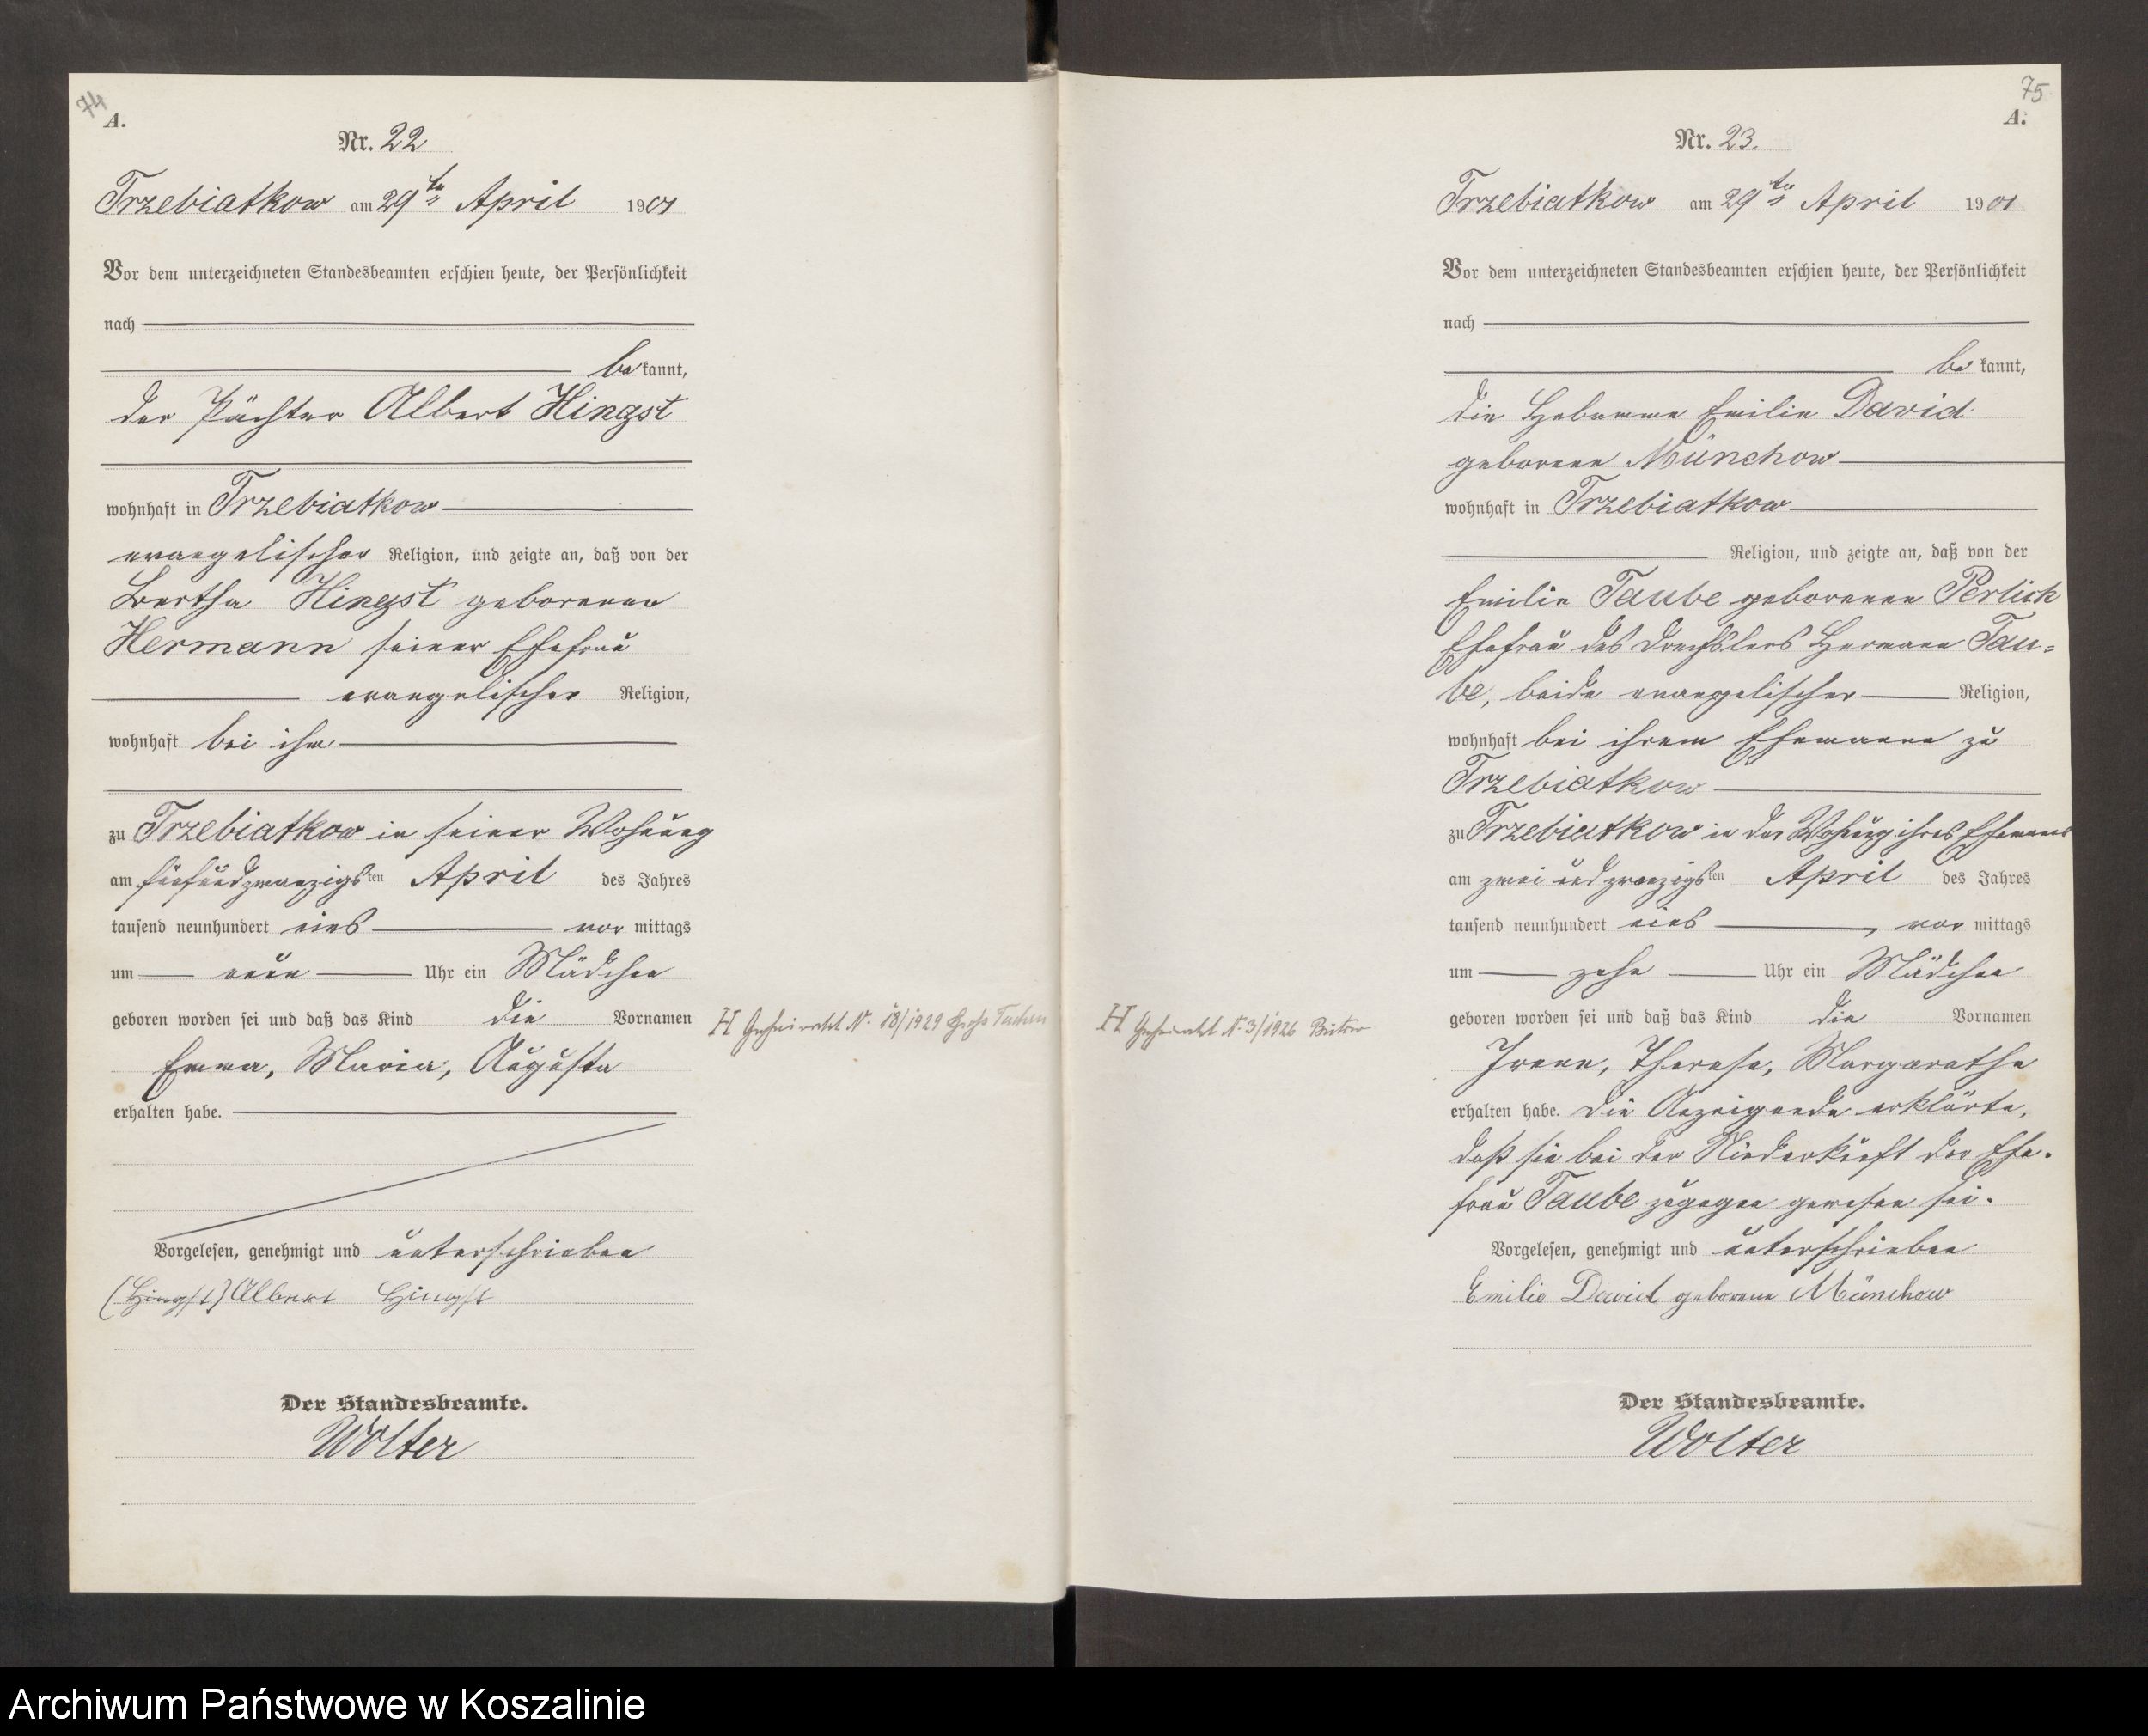 74
A.
Nr. 22
Trzebiatkow am 29ten April 1901
Vor dem unterzeichneten Standesbeamten erschien heute, der Persönlichkeit
nach
bekannt,
der Pächter Albert Hingst
wohnhaft in Trzebiatkow
evangelischer Religion, und zeigte an, daß von der
Bertha Hingst geborenen
Hermann seiner Ehefrau
evangelischer Religion,
wohnhaft bei ihm
zu Trzebiatkow in seiner Wohnung
am fünfundzwanzigsten April des Jahres
tausend neunhundert eins vor mittags
um neun Uhr ein Mädchen
geboren worden sei und daß das Kind die Vornamen
H Geheiratet Nr. 18/1929 Groß Tuchen
Emma, Maria, Augusta
erhalten habe.
Vorgelesen, genehmigt und unterschrieben
(Hingst) Albert Hingst
Der Standesbeamte.
Wolter
75
A.
Nr. 23.
Trzebiatkow am 29ten April 1901
Vor dem unterzeichneten Standesbeamten erschien heute, der Persönlichkeit
nach
bekannt,
die Hebamme Emilie David
geborene Münchow
wohnhaft in Trzebiatkow
Religion, und zeigte an, daß von der
Emilie Taube geborenen Perlick
Ehefrau des Drechslers Hermann Tau=
be, beide evangelischer Religion,
wohnhaft bei ihrem Ehemanne zu
Trzebiatkow
zu Trzebiatkow in der Wohnung ihres Ehemanns
am zwei und zwanzigsten April des Jahres
tausend neunhundert eins, vor mittags
um zehn Uhr ein Mädchen
geboren worden sei und daß das Kind die Vornamen
H Geheiratet Nr. 3/1926 Bütow
Irene, Therese, Margarethe
erhalten habe. Die Anzeigende erklärte,
daß sie bei der Niederkunft der Ehe-
frau Taube zugegen gewesen sei.
Vorgelesen, genehmigt und unterschrieben
Emilie David geborene Münchow
Der Standesbeamte.
Wolter
Archiwum Państwowe w Koszalinie